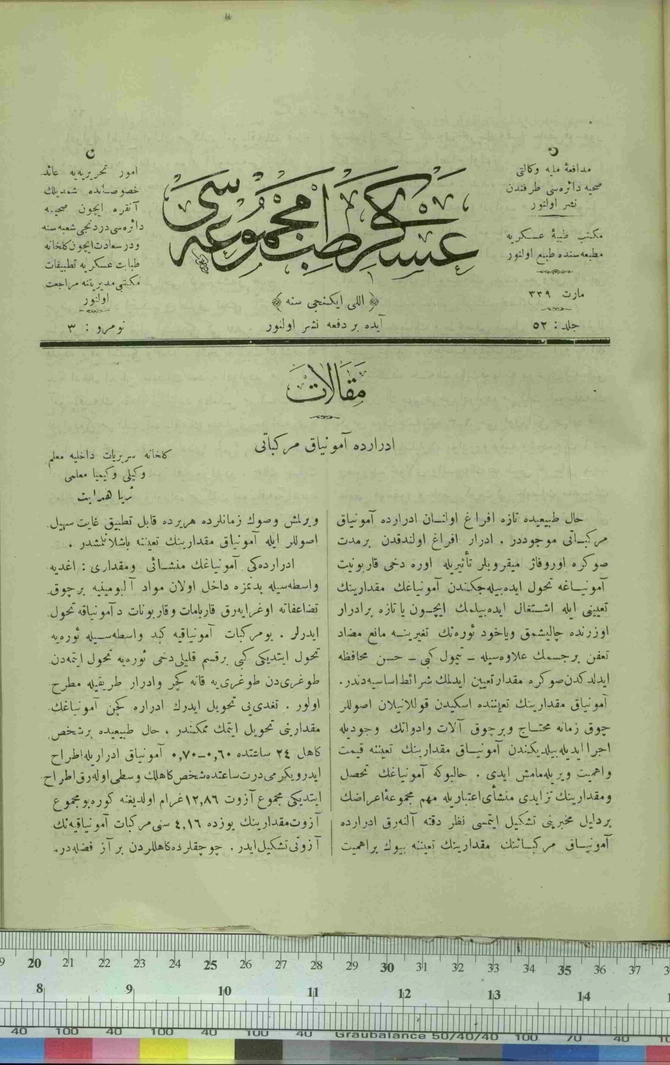 مدافعهٔ ملیه وکالتی
صحیه دائره‌سی طرفندن
نشر اولنور
مکتب طبیهٔ عسکریه
مطبعه‌سنده طبع اولنور
مارت ٣٣٩
جلد : ٥٢
عسکری طب مجموعه‌سی
﴿ اللی ایکنجی سنه ﴾
آیده بر دفعه نشر اولنور
امور تحریریه‌یه عائد
خصوصاتده شمدیلك
آنقره ایچون صحیه
دائره‌سی دردنجی شعبه‌سنه
ودرسعادت ایچون کلخانه
طبابت عسکریه تطبیقات
مکتبی مدیریتنه مراجعت
اولنور
نومرو : ٣
مقالات
ادرارده آمونیاق مرکباتی
کلخانه سریریات داخلیه معلم
وکیلی وکیمیا معلمی
ثریا هدایت
حال طبیعیده تازه افراغ اولنان ادرارده آمونیاق
مرکباتی موجوددر . ادرار افراغ اولندقدن برمدت
صوکره اوروفاژ میقروبلر تأثیریله اوره دخی قاربونیت
آمونیاغه تحول ایده‌بیله‌جکندن آمونیاغك مقدارینك
تعیینی ایله اشتغال ایده‌بیلمك ایچون یا تازه برادرار
اوزرنده چالیشمق ویاخود ئوره‌نك تغیرینه مانع مضاد
تعفن برجسمك علاوه‌سیله ــ تیمول کبی ــ حسن محافظه
ایدلدکدن صوکره مقدار تعیین ایدلمك شرائط اساسیه‌دندر.
آمونیاق مقدارینك تعیننده اسکیدن قوللانیلان اصوللر
چوق زمانه محتاج وبرچوق آلات وادواتك وجودیله
اجرا ایدیله‌بیلدیکندن آمونیاق مقدارینك تعییننه قیمت
واهمیت ویریله‌مامش ایدی . حالبوکه آمونیاغك تحصل
ومقدارینك تزایدی منشأی اعتباریله مهم مجموعهٔ اعراضك
بردلیل مخبرینی تشکیل ایتمسی نظر دقته آلنه‌رق ادرارده
آمونیاق مرکباتنك مقدارینك تعییننه بیوك براهمیت
ویرلمش وصوك زمانلرده هریرده قابل تطبیق غایت سهیل
اصوللر ایله آمونیاق مقدارینك تعییننه باشلانلمشدر .
ادرارده‌کی آمونیاغك منشائی ومقداری : اغدیه
واسطه‌سیله بدنمزه داخل اولان مواد آلبومینیه برچوق
تضاعفاته اوغرایه‌رق قاربامات وقاربونات دآمونیاقه تحول
ایدرلر . بومرکبات آمونیاقیه کبد واسطه‌سیله ئوره‌یه
تحول ایتدیکی کبی برقسم قلیلی دخی ئوره‌یه تحول ایتمه‌دن
طوغریدن طوغری‌یه قانه کچر وادرار طریقیله مطرح
اولور . تغدی‌یی تحویل ایدرك ادراره کچن آمونیاغك
مقدارینی تحویل ایتمك ممکندر . حال طبیعیده برشخص
کاهل ٢٤ ساعتده ٠٫٦٠ــ٠٫٧٠ آمونیاق ادراریله اطراح
ایدر ویکرمی درت ساعتده شخص کاهلك وسطی اوله‌رق اطراح
ایتدیکی مجموع آزوت ١٢٫٨٦ غرام اولدیغنه کوره بو مجموع
آزوت مقدارینك یوزده ٤٫١٦ سنی مرکبات آمونیاقیه‌نك
آزوتی تشکیل ایدر . چوجقلرده کاهللردن بر آز فضله‌در.
19 20 21 22 23 24 25 26 27 28 29 30 31 32 33 34 35 36 37
8 9 10 11 12 13 14
Graubalance 50/40/40